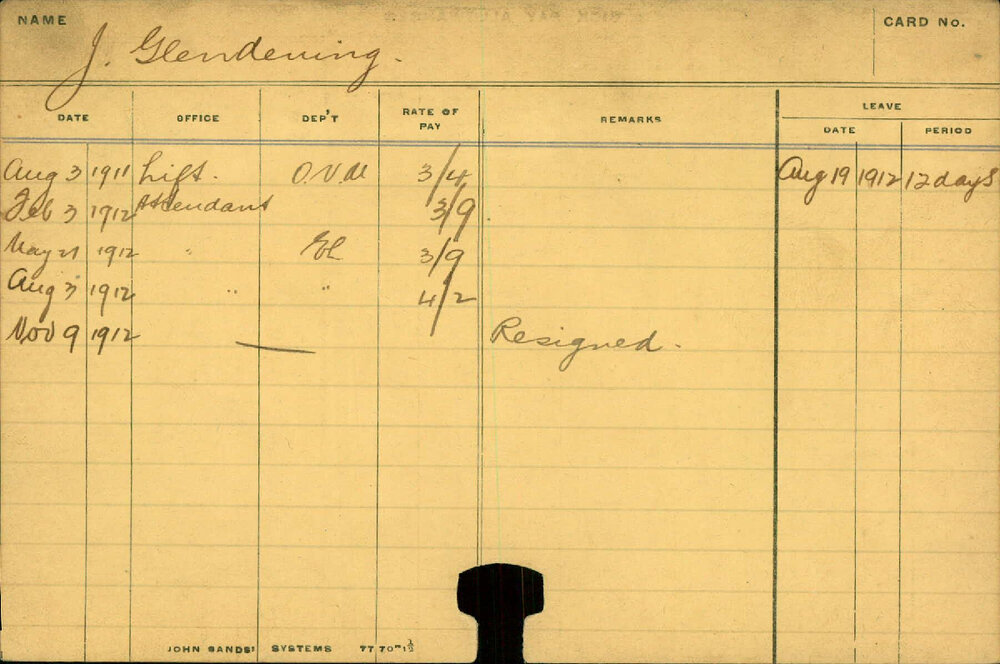 NAME
J. Glendening.
CARD No.
DATE OFFICE DEP'T RATE OF PAY REMARKS LEAVE
DATE PERIOD
Aug 3 1911 Lift. O.V.M 3/4 Aug 19 1912 12 days
Feb 3 1912 Attendant 3/9
May 21 1912 " 3/9
Aug 3 1912 " " 4/2
Nov 9 1912 — Resigned.
JOHN SANDS' SYSTEMS